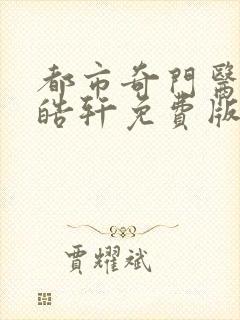 都市奇門醫
皓軒免費版
賈耀斌